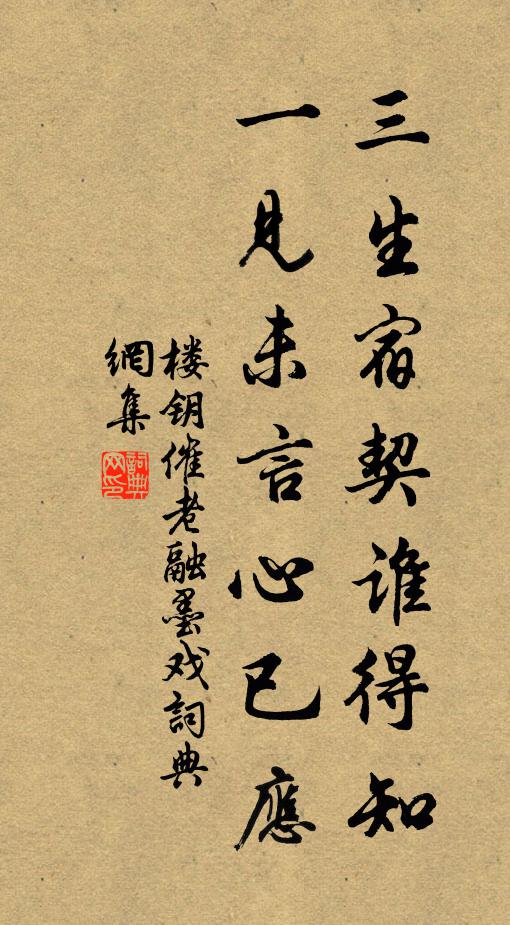 三生宿契谁得知
一见未言心已應
楼钥催老融墨戏詞典
網集
詞典网印